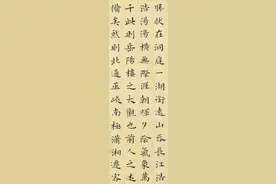 勝狀在洞庭一湖銜遠山吞長江浩
浩湯湯橫無際涯朝暉夕陰氣象萬
千此則岳陽樓之大觀也前人之述
備矣然則北通巫峽南極瀟湘遷客